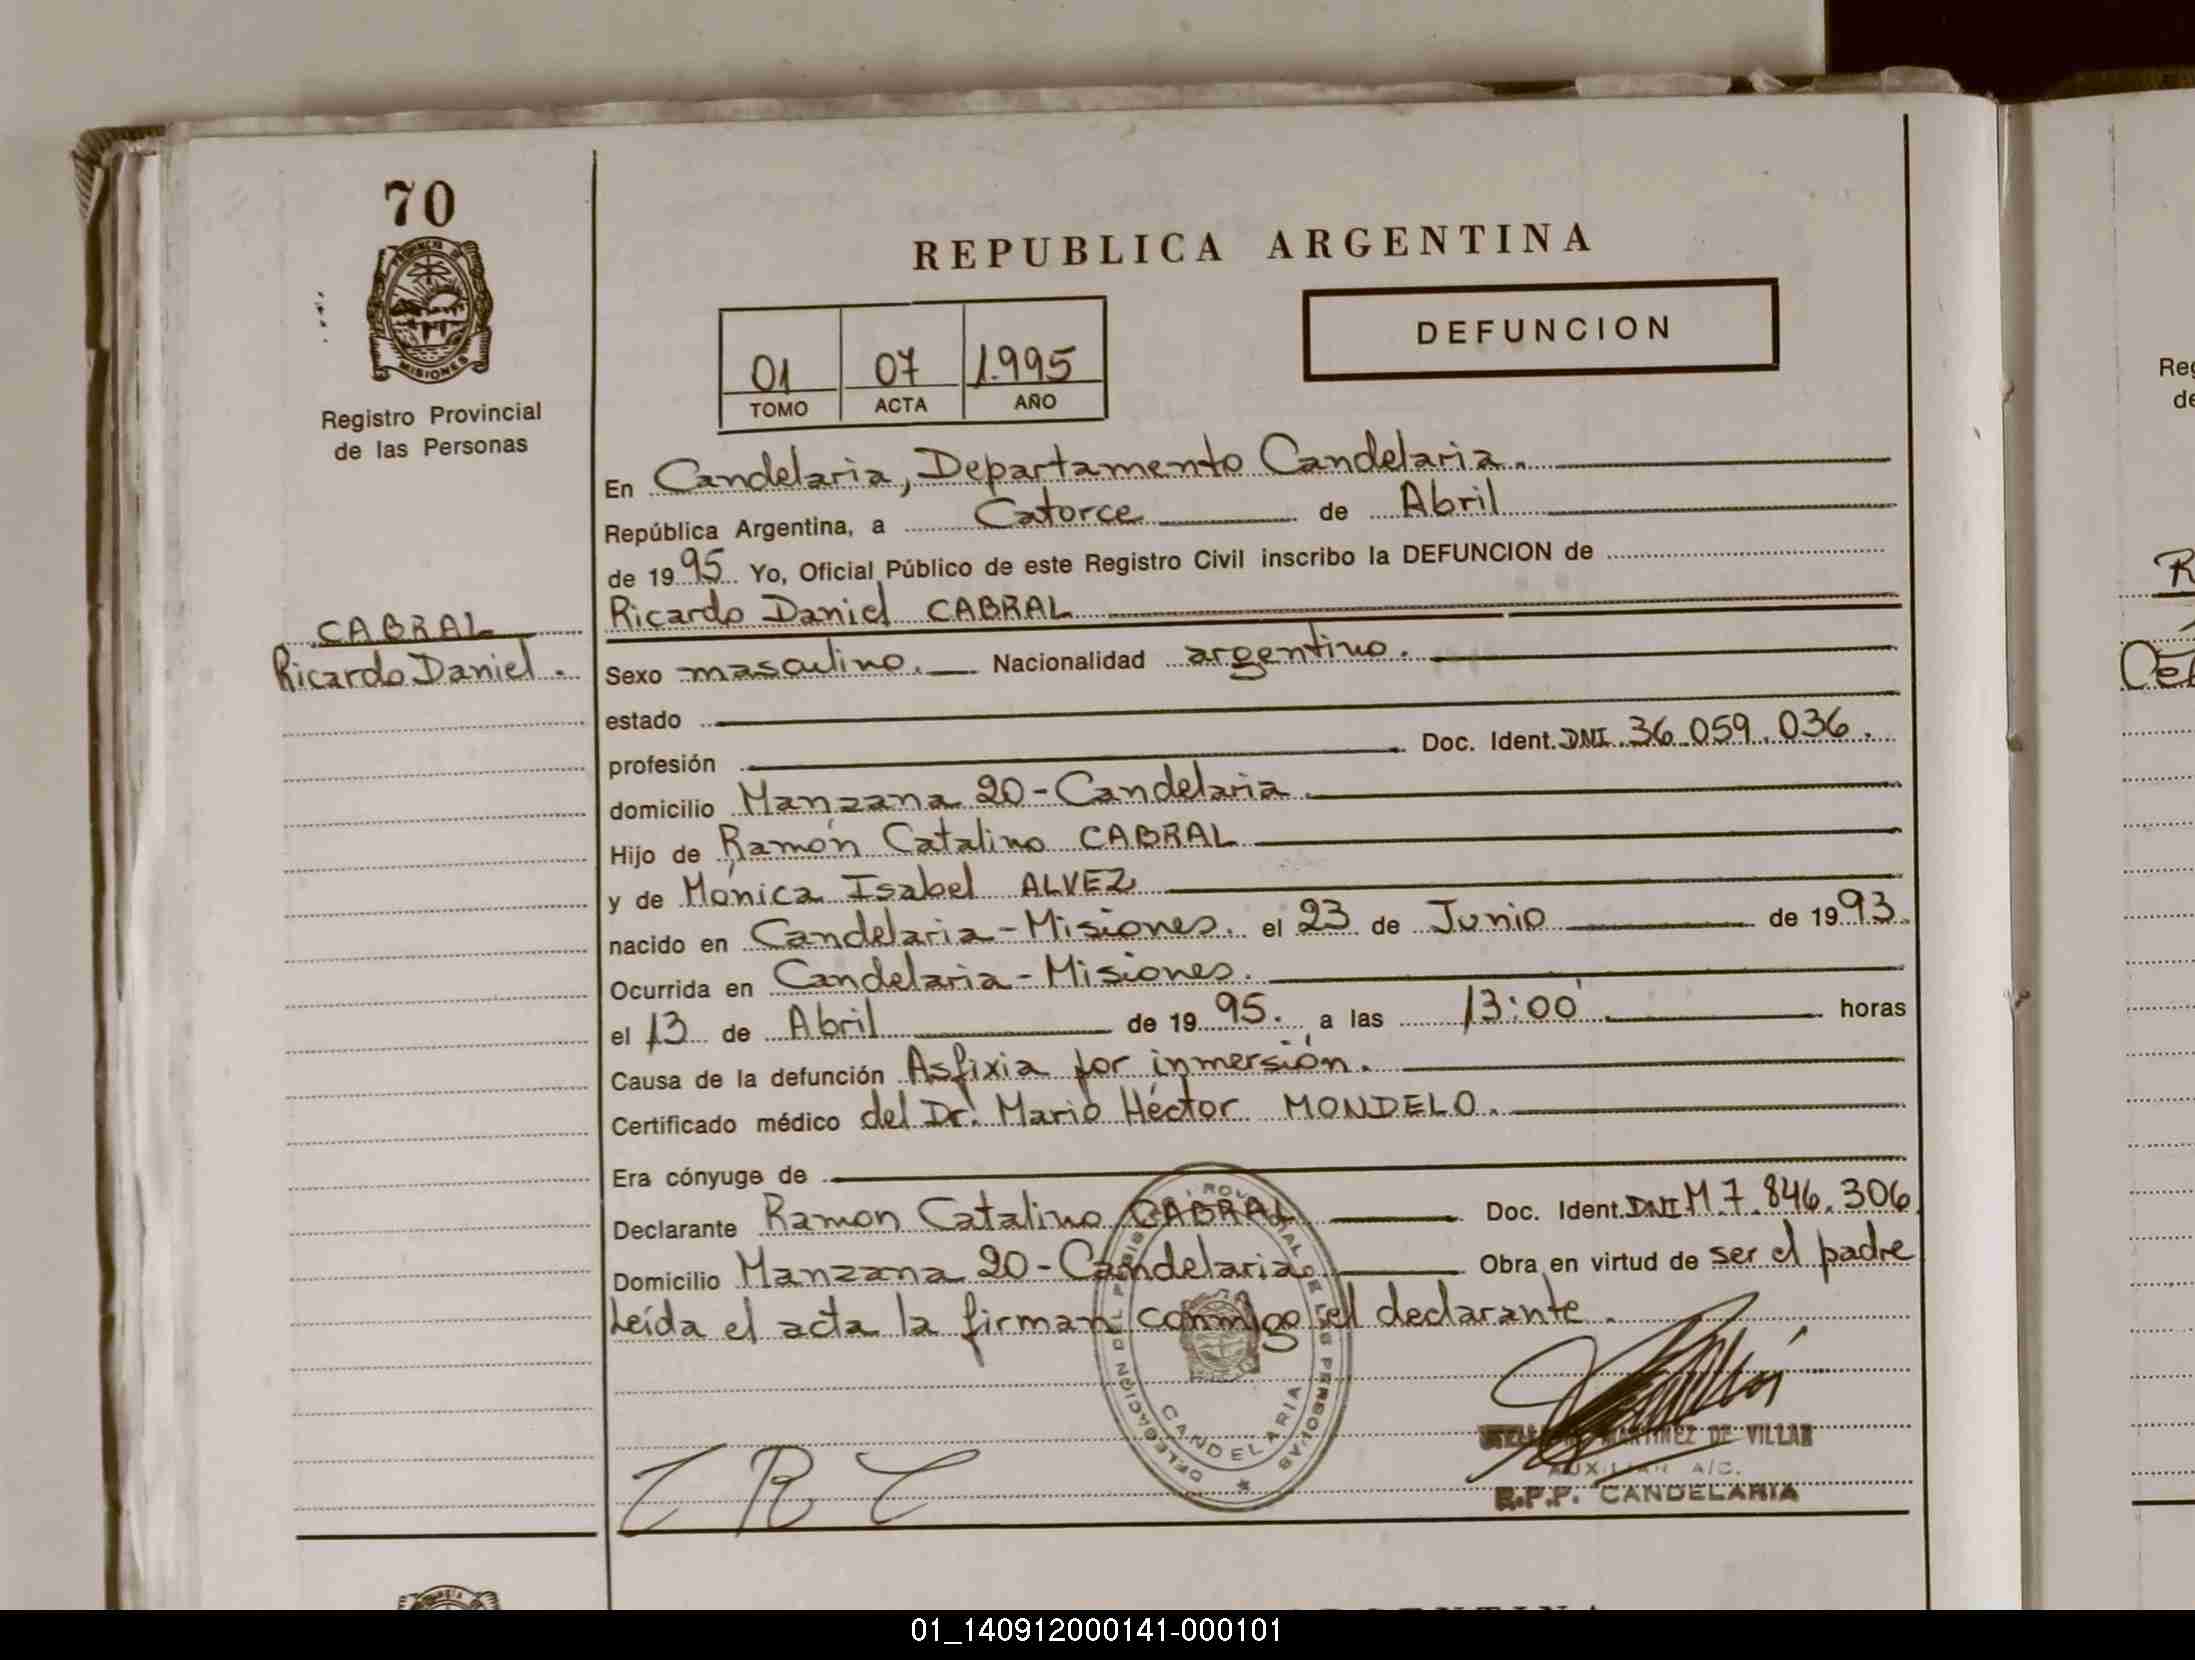 70
PROVINCIA DE
MISIONES
Registro Provincial
de las Personas
CABRAL
Ricardo Daniel.
REPUBLICA ARGENTINA
DEFUNCION
01 07 1.995
TOMO ACTA AÑO
En Candelaria, Departamento Candelaria.
República Argentina, a Catorce de Abril
de 1995 Yo, Oficial Público de este Registro Civil inscribo la DEFUNCION de
Ricardo Daniel CABRAL
Sexo masculino. Nacionalidad argentino.
estado
profesión Doc. Ident. DNI 36.059.036.
domicilio Manzana 20-Candelaria
Hijo de Ramón Catalino CABRAL
y de Mónica Isabel ALVEZ
nacido en Candelaria-Misiones. el 23 de Junio de 1993.
Ocurrida en Candelaria-Misiones.
el 13 de Abril de 1995. a las 13:00 horas
Causa de la defunción Asfixia por inmersión.
Certificado médico del Dr. Mario Héctor MONDELO.
Era cónyuge de
Declarante Ramon Catalino CABRAL Doc. Ident. DNI M 7.846.306
Domicilio Manzana 20-Candelaria. Obra en virtud de ser el padre
Leída el acta la firman conmigo el declarante.
DELEGACION DEL REGISTRO PROVINCIAL DE LAS PERSONAS
CANDELARIA
C R C
MARTINEZ DE VILLAR
AUXILIAR A/C.
R.P.P. CANDELARIA
Reg
de
R
Cel
01_140912000141-000101